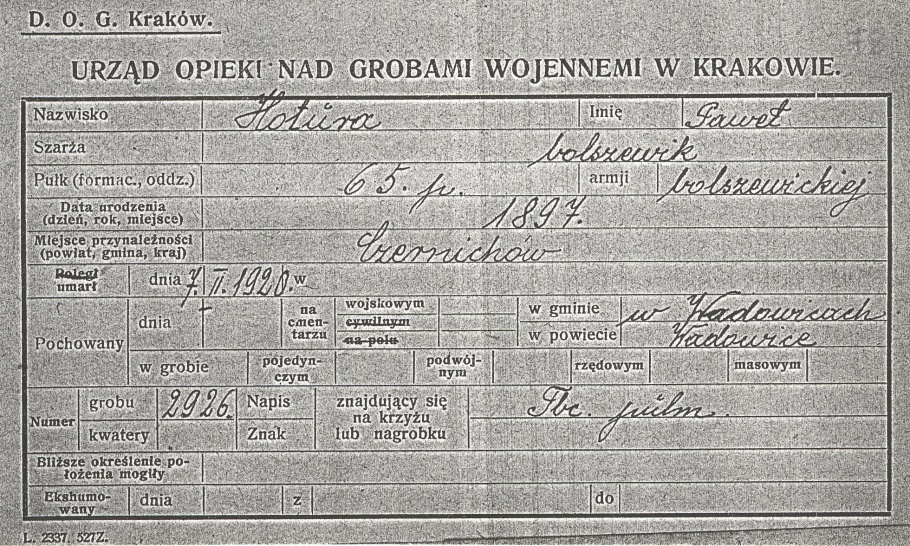 D. O. G. Kraków.
URZĄD OPIEKI NAD GROBAMI WOJENNEMI W KRAKOWIE.
Nazwisko Hotúra Imię Paweł
Szarża bolszewik
Pułk (formac., oddz.) 65. p. armji bolszewickiej
Data urodzenia
(dzień, rok, miejsce) 1897.
Miejsce przynależności
(powiat, gmina, kraj) Czernichów
Poległ
umarł dnia 7. II. 1920. w
Pochowany dnia na cmen-tarzu wojskowym w gminie w Wadowicach
cywilnym
na polu w powiecie Wadowice
w grobie pojedyn-czym podwój-nym rzędowym masowym
Numer grobu 2926. Napis znajdujący się Tbc. pulm.
kwatery Znak na krzyżu
lub nagrobku
Bliższe określenie po-
łożenia mogiły
Ekshumo-
wany dnia z do
L. 2337. 527Z.